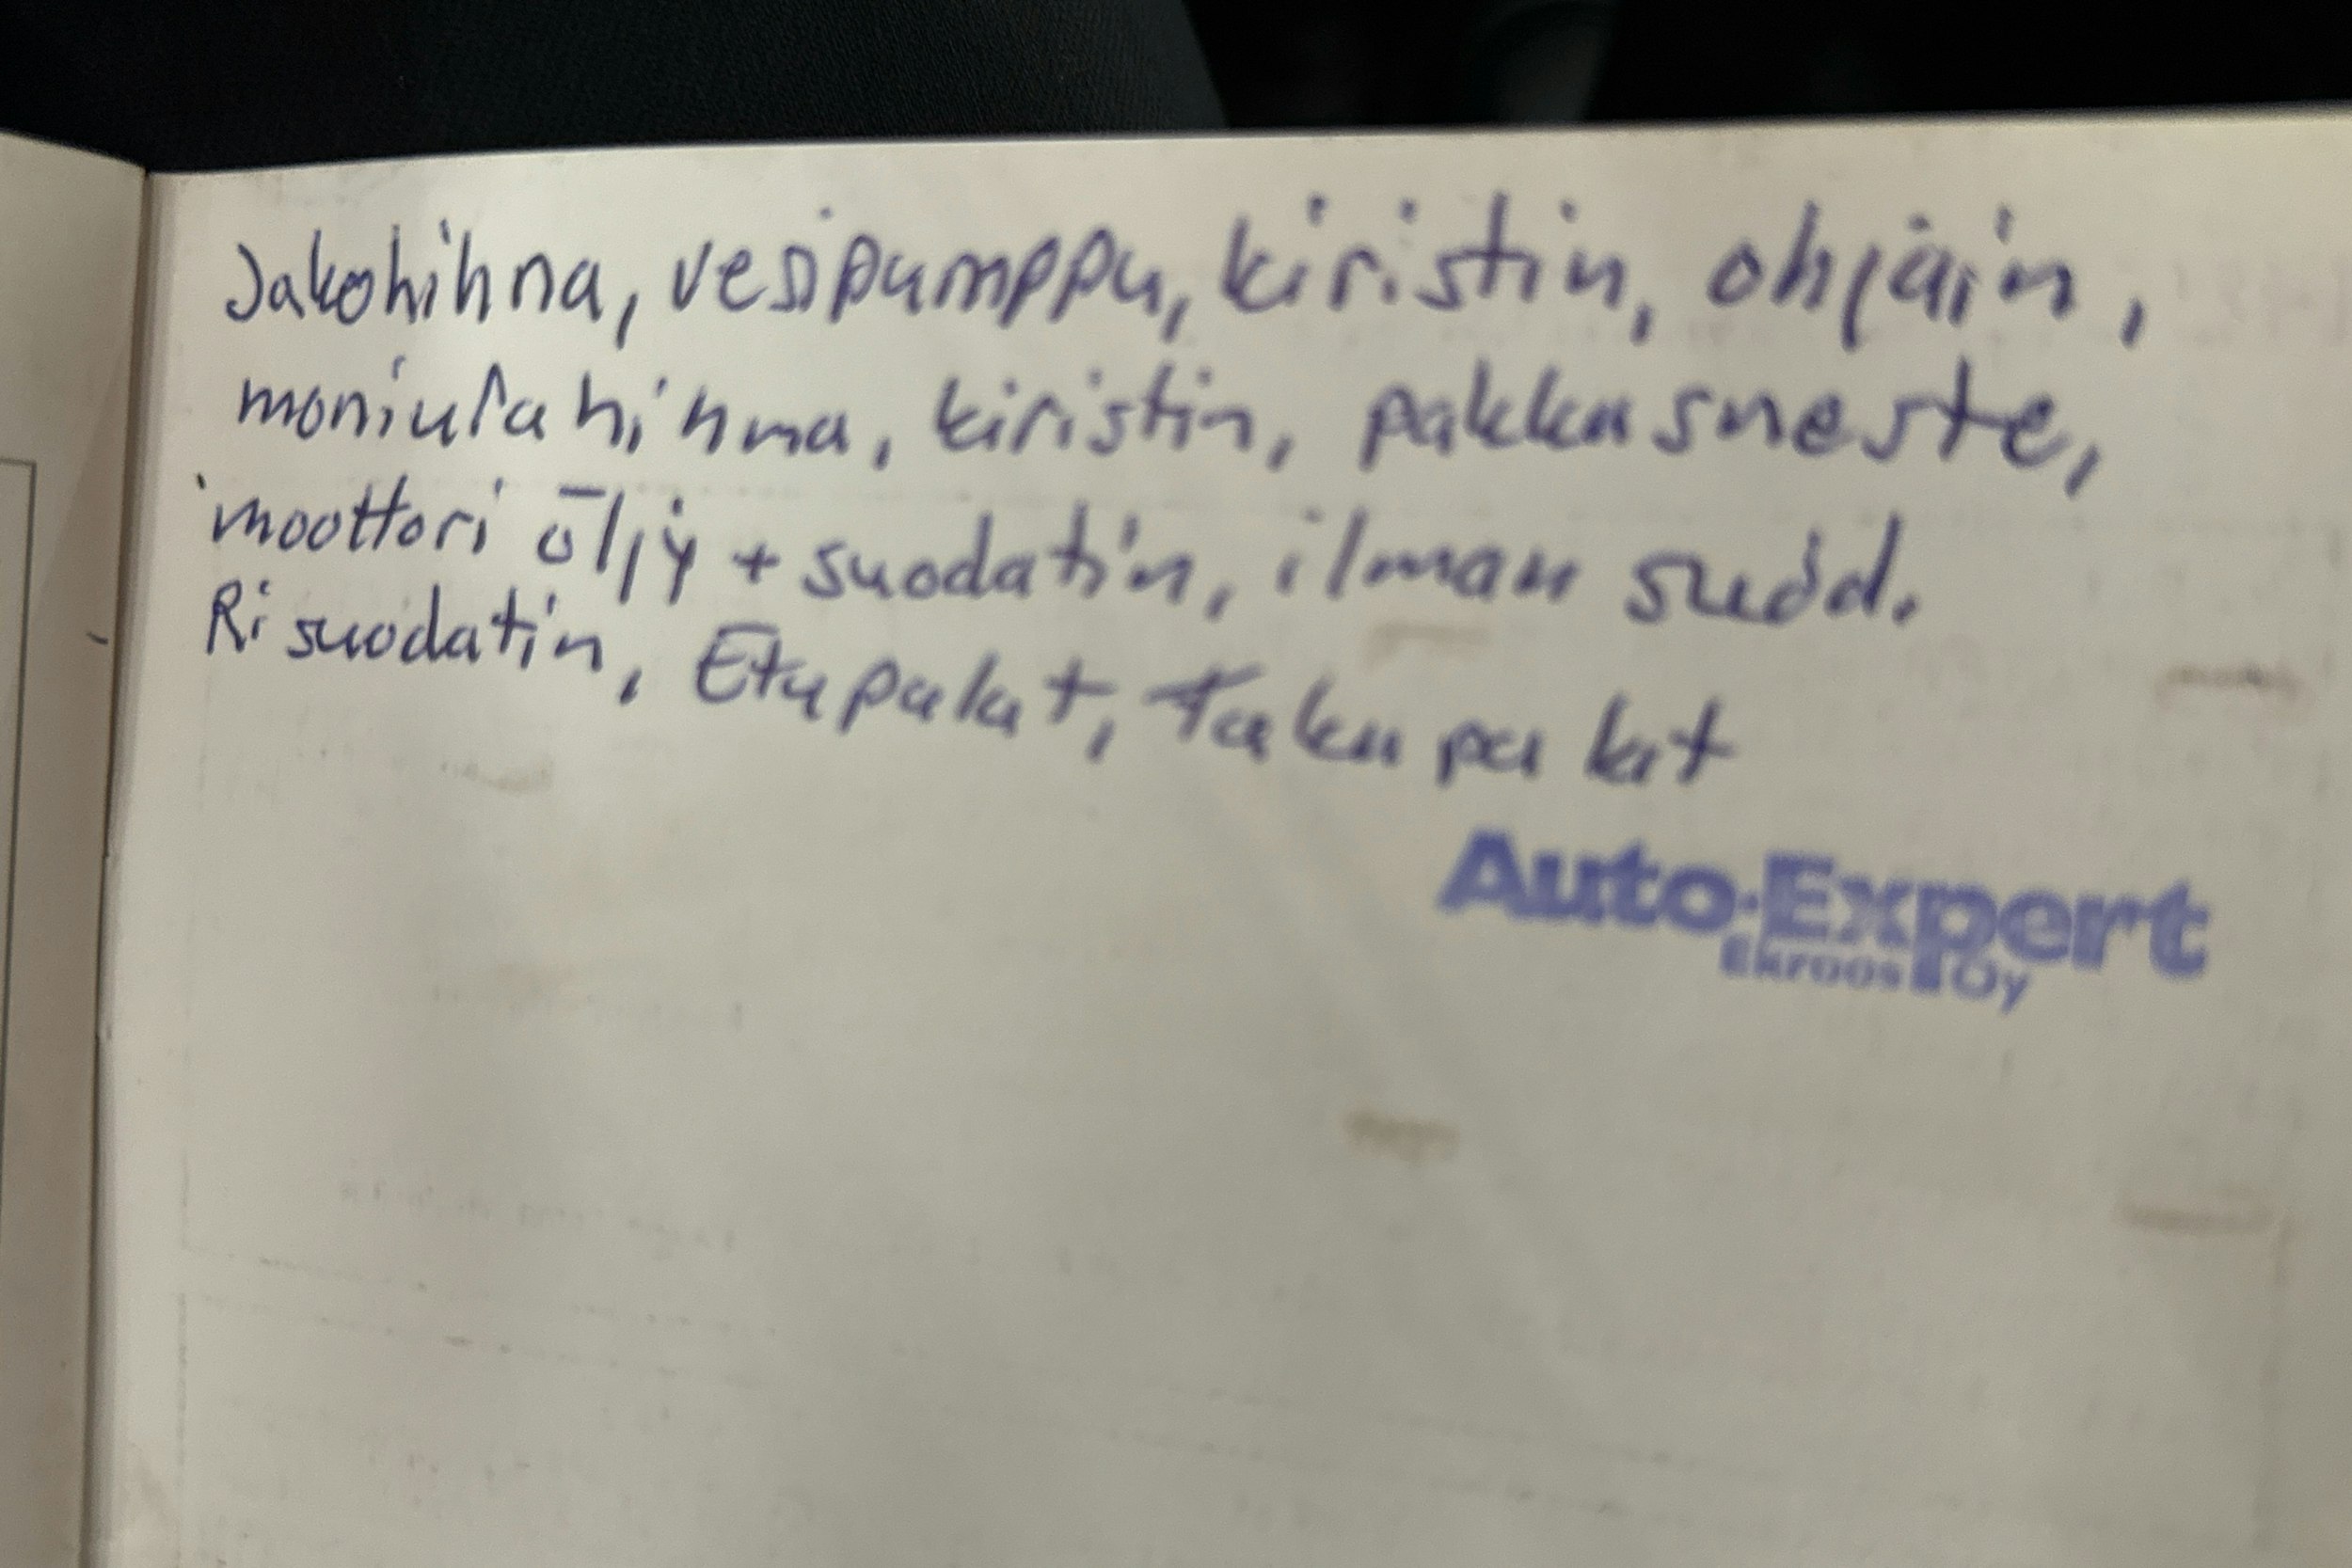 Jakohihna, vesipumppu, kiristin, ohjain,
moniurahihna, kiristin, pakkasneste,
moottori öljy + suodatin, ilman suod.
Ri suodatin, Etupalat, Taka palat
Auto-Expert
Ekroos Oy